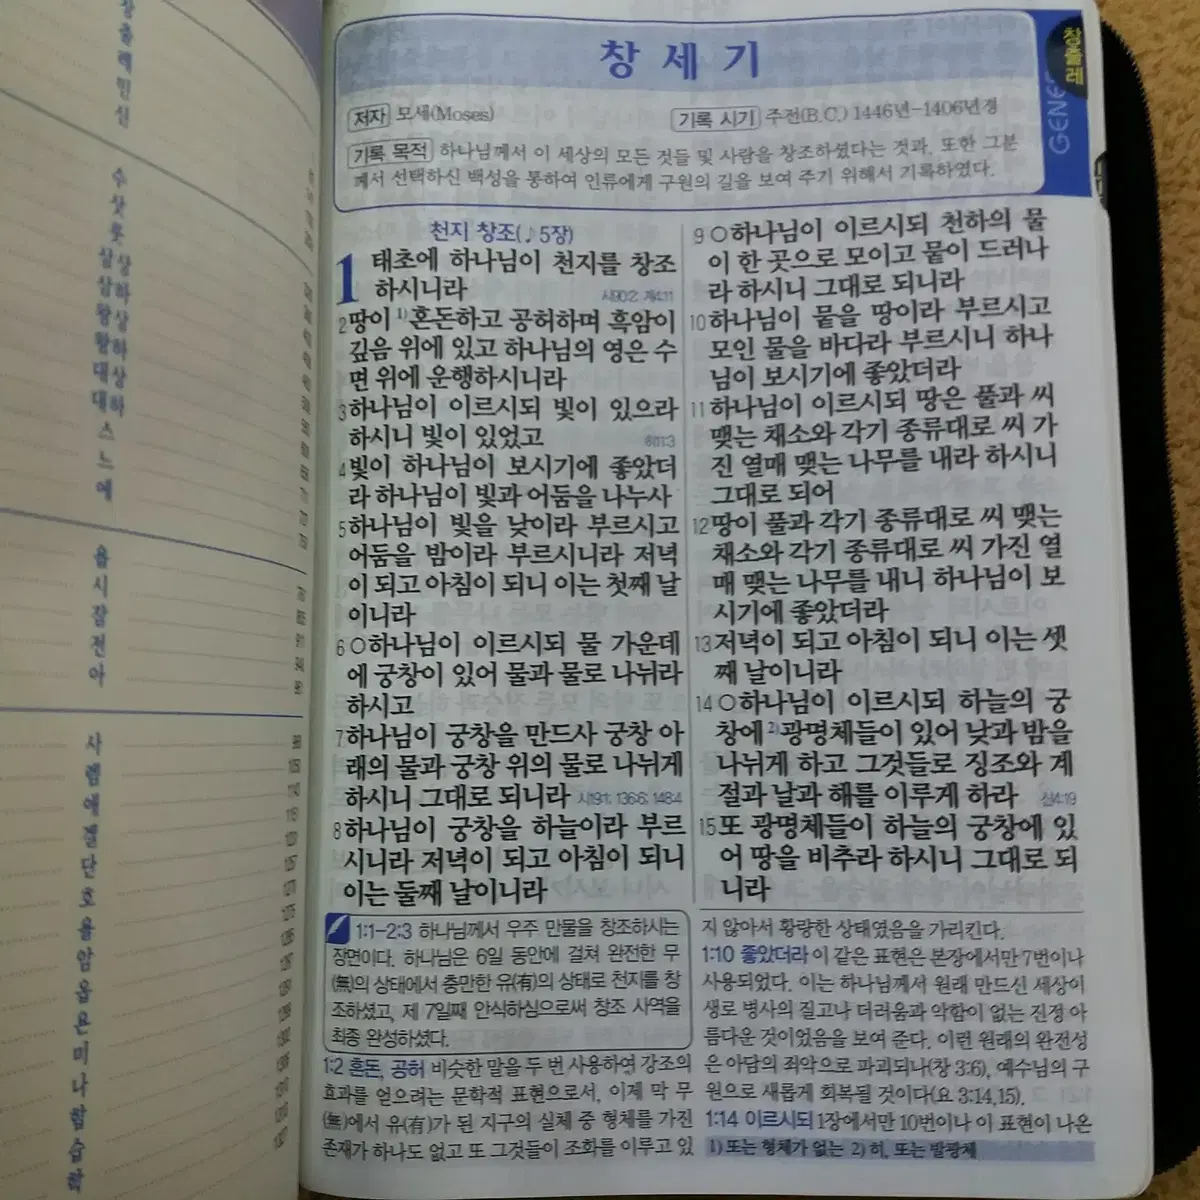 창출레민신
수삿룻삼삼왕왕대대스느에
상하상하상하
욥시잠전아
사렘애겔단호욜암옵욘미나합습학
창세기
창출레
GENE
저자 모세(Moses)
기록 시기 주전(B.C.) 1446년-1406년경
기록 목적 하나님께서 이 세상의 모든 것들 및 사람을 창조하셨다는 것과, 또한 그분
께서 선택하신 백성을 통하여 인류에게 구원의 길을 보여 주기 위해서 기록하였다.
천지 창조(♪5장)
1 태초에 하나님이 천지를 창조
하시니라 시90:2; 계4:11
2 땅이 1)혼돈하고 공허하며 흑암이
깊음 위에 있고 하나님의 영은 수
면 위에 운행하시니라
3 하나님이 이르시되 빛이 있으라
하시니 빛이 있었고 히11:3
4 빛이 하나님이 보시기에 좋았더
라 하나님이 빛과 어둠을 나누사
5 하나님이 빛을 낮이라 부르시고
어둠을 밤이라 부르시니라 저녁
이 되고 아침이 되니 이는 첫째 날
이니라
6 ○하나님이 이르시되 물 가운데
에 궁창이 있어 물과 물로 나뉘라
하시고
7 하나님이 궁창을 만드사 궁창 아
래의 물과 궁창 위의 물로 나뉘게
하시니 그대로 되니라 시19:1; 136:6; 148:4
8 하나님이 궁창을 하늘이라 부르
시니라 저녁이 되고 아침이 되니
이는 둘째 날이니라
9 ○하나님이 이르시되 천하의 물
이 한 곳으로 모이고 뭍이 드러나
라 하시니 그대로 되니라
10 하나님이 뭍을 땅이라 부르시고
모인 물을 바다라 부르시니 하나
님이 보시기에 좋았더라
11 하나님이 이르시되 땅은 풀과 씨
맺는 채소와 각기 종류대로 씨 가
진 열매 맺는 나무를 내라 하시니
그대로 되어
12 땅이 풀과 각기 종류대로 씨 맺는
채소와 각기 종류대로 씨 가진 열
매 맺는 나무를 내니 하나님이 보
시기에 좋았더라
13 저녁이 되고 아침이 되니 이는 셋
째 날이니라
14 ○하나님이 이르시되 하늘의 궁
창에 2)광명체들이 있어 낮과 밤을
나뉘게 하고 그것들로 징조와 계
절과 날과 해를 이루게 하라 신4:19
15 또 광명체들이 하늘의 궁창에 있
어 땅을 비추라 하시니 그대로 되
니라
1:1-2:3 하나님께서 우주 만물을 창조하시는
장면이다. 하나님은 6일 동안에 걸쳐 완전한 무
(無)의 상태에서 충만한 유(有)의 상태로 천지를 창
조하셨고, 제 7일째 안식하심으로써 창조 사역을
최종 완성하셨다.
1:2 혼돈, 공허 비슷한 말을 두 번 사용하여 강조의
효과를 얻으려는 문학적 표현으로서, 이제 막 무
(無)에서 유(有)가 된 지구의 실체 중 형체를 가진
존재가 하나도 없고 또 그것들이 조화를 이루고 있
지 않아서 황량한 상태였음을 가리킨다.
1:10 좋았더라 이 같은 표현은 본장에서만 7번이나
사용되었다. 이는 하나님께서 원래 만드신 세상이
생로 병사의 질고나 더러움과 악함이 없는 진정 아
름다운 것이었음을 보여 준다. 이런 원래의 완전성
은 아담의 죄악으로 파괴되나(창 3:6), 예수님의 구
원으로 새롭게 회복될 것이다(요 3:14,15).
1:14 이르시되 1장에서만 10번이나 이 표현이 나온
1) 또는 형체가 없는 2) 히, 또는 발광체